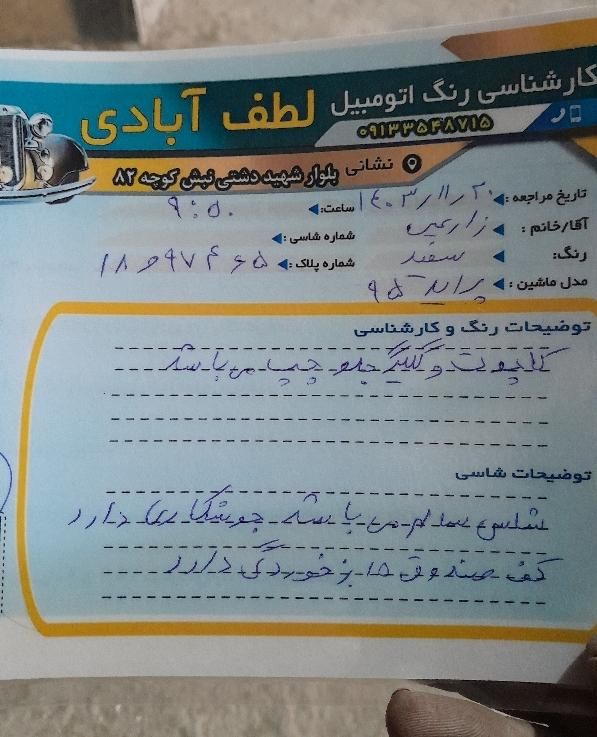 کارشناسی رنگ اتومبیل لطف آبادی
۰۹۱۳۳۵۴۸۷۱۵
نشانی بلوار شهید دشتی نبش کوچه ۸۲
تاریخ مراجعه: ۱۴۰۳/۱۱/۲۰ ساعت: ۹:۵۰
آقا/خانم: زارعین شماره شاسی:
رنگ: سفید شماره پلاک:
مدل ماشین: پراید ۹۵
توضیحات رنگ و کارشناسی
کاپوت و گلگیر جلو چپ می باشد
توضیحات شاسی
شاسی سالم می باشد جوشکاری دارد
کف صندوق خوردگی دارد